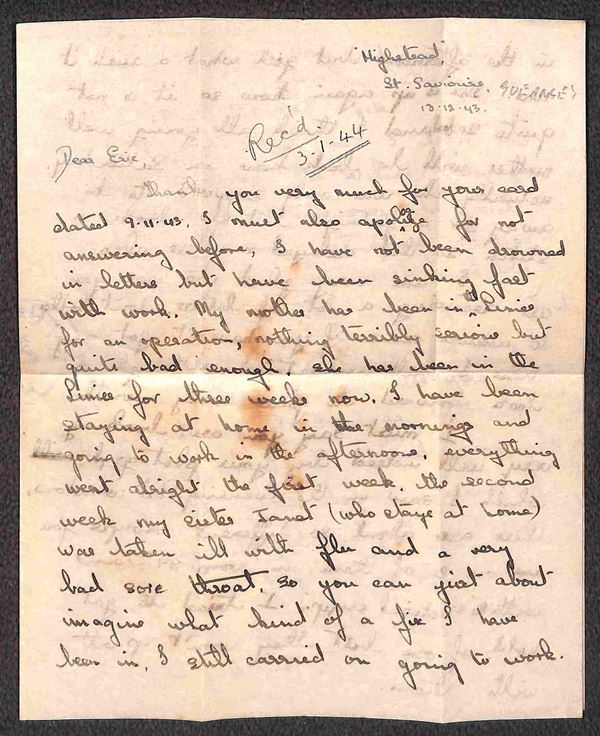 "Highstead",
St. Saviours, GUERNSEY
13-12-43.
Rec'd.
3.1.44
Dear Eric,
Thank you very much for your card
dated 9-11-43. I must also apologize for not
answering before, I have not been drowned
in letters but have been sinking fast
with work. My mother has been in the Limes
for an operation, nothing terribly serious but
quite bad enough. She has been in the
Limes for three weeks now. I have been
staying at home in the mornings and
going to work in the afternoons. everything
went alright the first week. the second
week my sister Janet (who stays at home)
was taken ill with flu and a very
bad sore throat. So you can just about
imagine what kind of a fix I have
been in. I still carried on going to work.